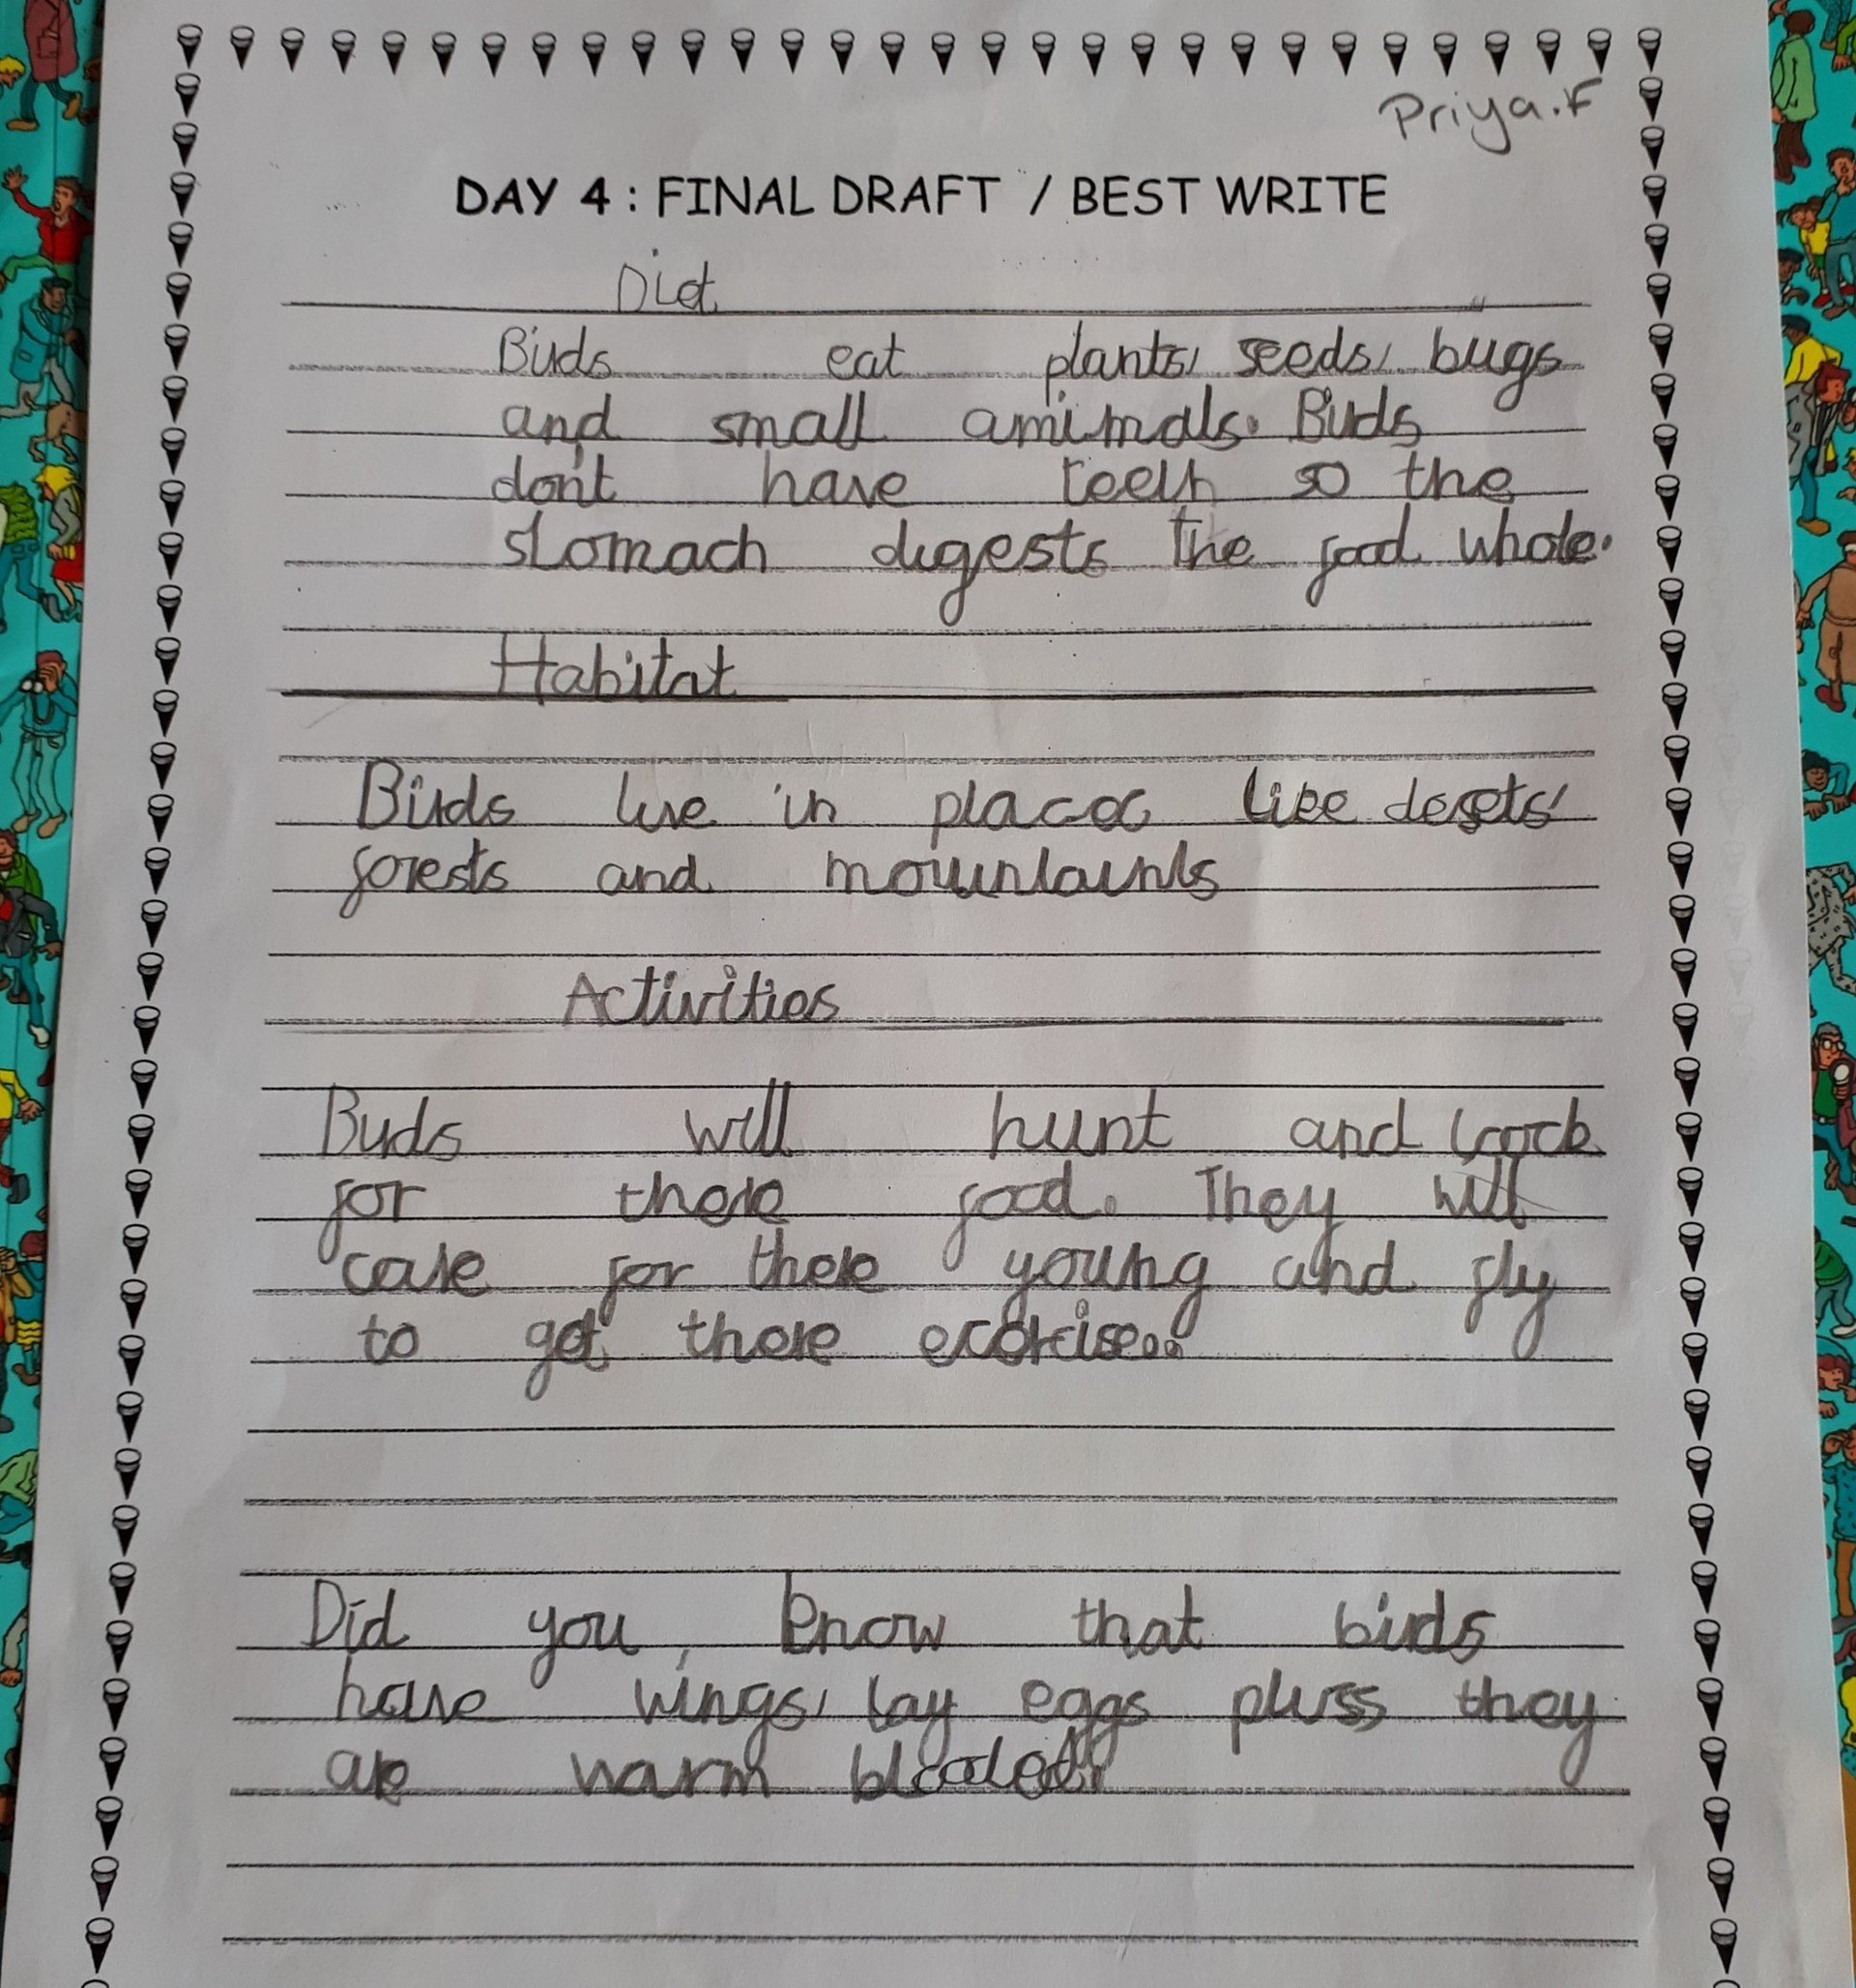 Priya.F
DAY 4 : FINAL DRAFT / BEST WRITE
Diet
Birds eat plants, seeds, bugs
and small amimals. Birds
don't have teeth so the
stomach digests the food whole.
Habitat
Birds live in places like desets,
forests and mountains
Activities
Birds will hunt and look
for there food. They will
care for there young and fly
to get there exorcise..
Did you know that birds
have wings, lay eggs pluss they
are warm blooded!